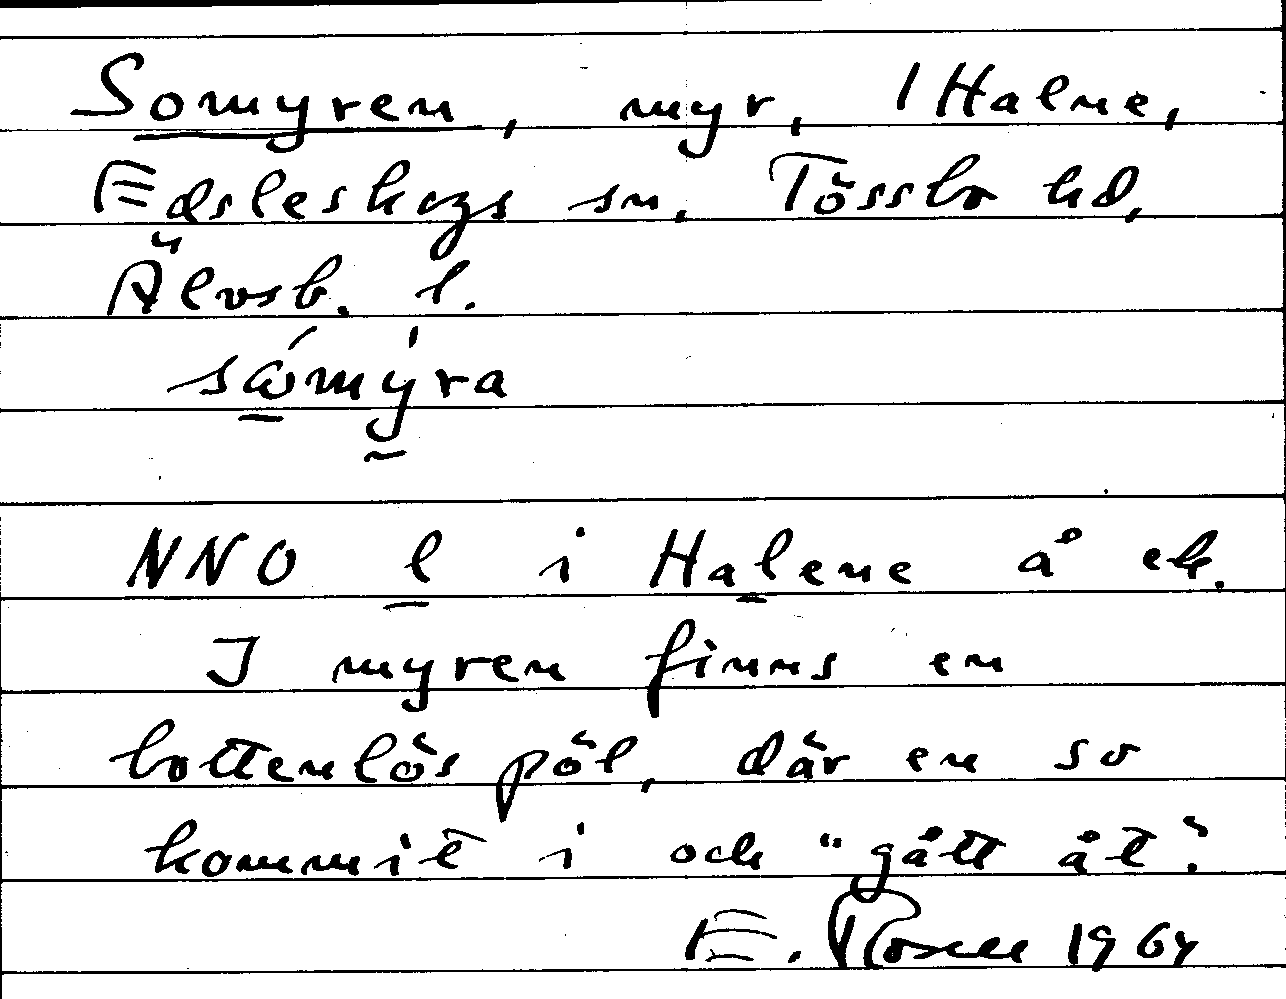 Somyren, myr, 1 Halne,
Edsleskogs sn, Tössbo hd,
Älvsb. l.
NNO l i Halene å ek.
I myren finns en
bottenlös pöl, där en so
kommit i och "gått åt".
E. Rosell 1964